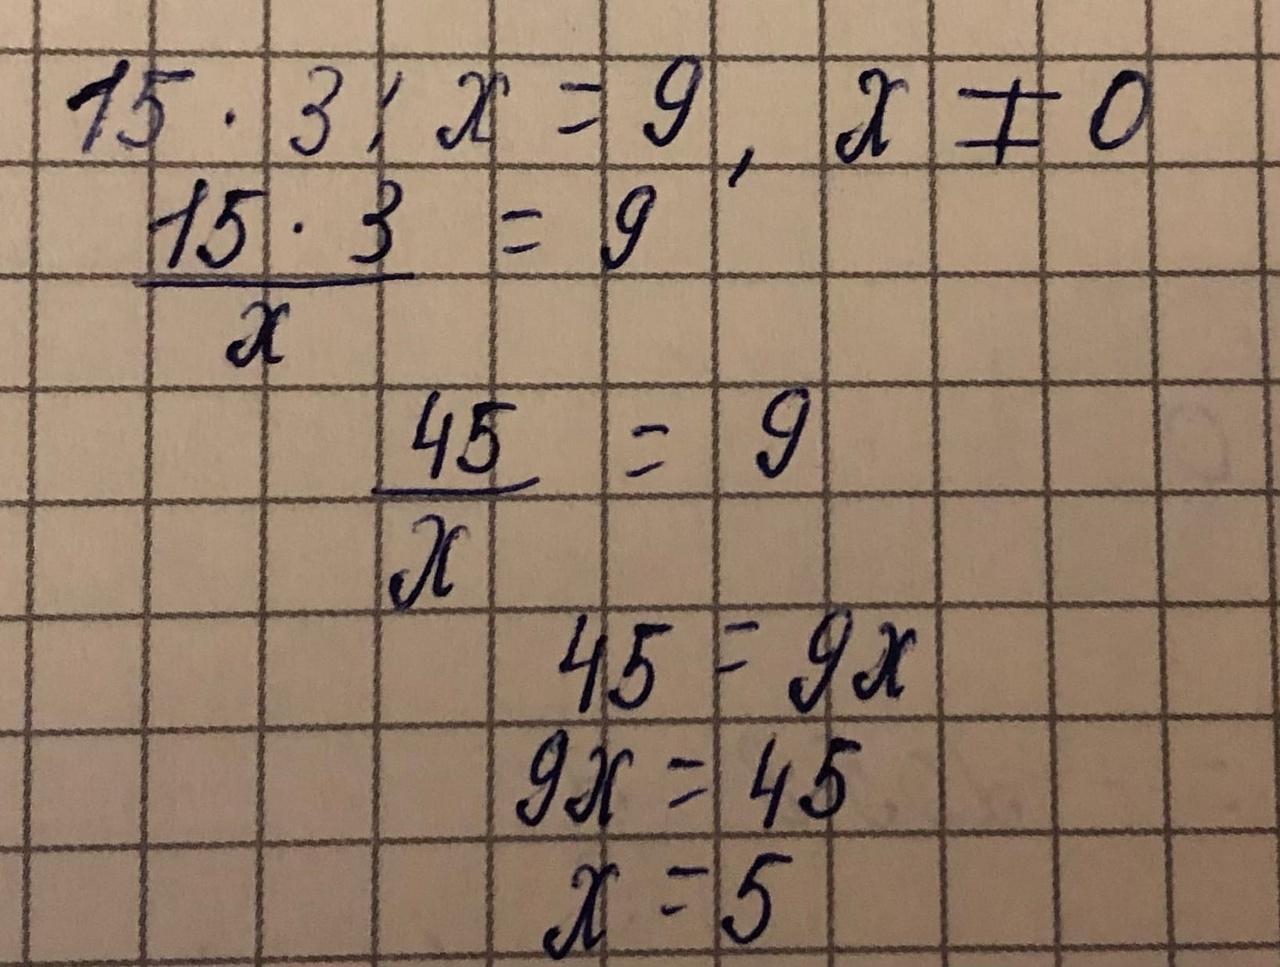 15 · 3 : x = 9, x ≠ 0
15 · 3 / x = 9
45 / x = 9
45 = 9x
9x = 45
x = 5